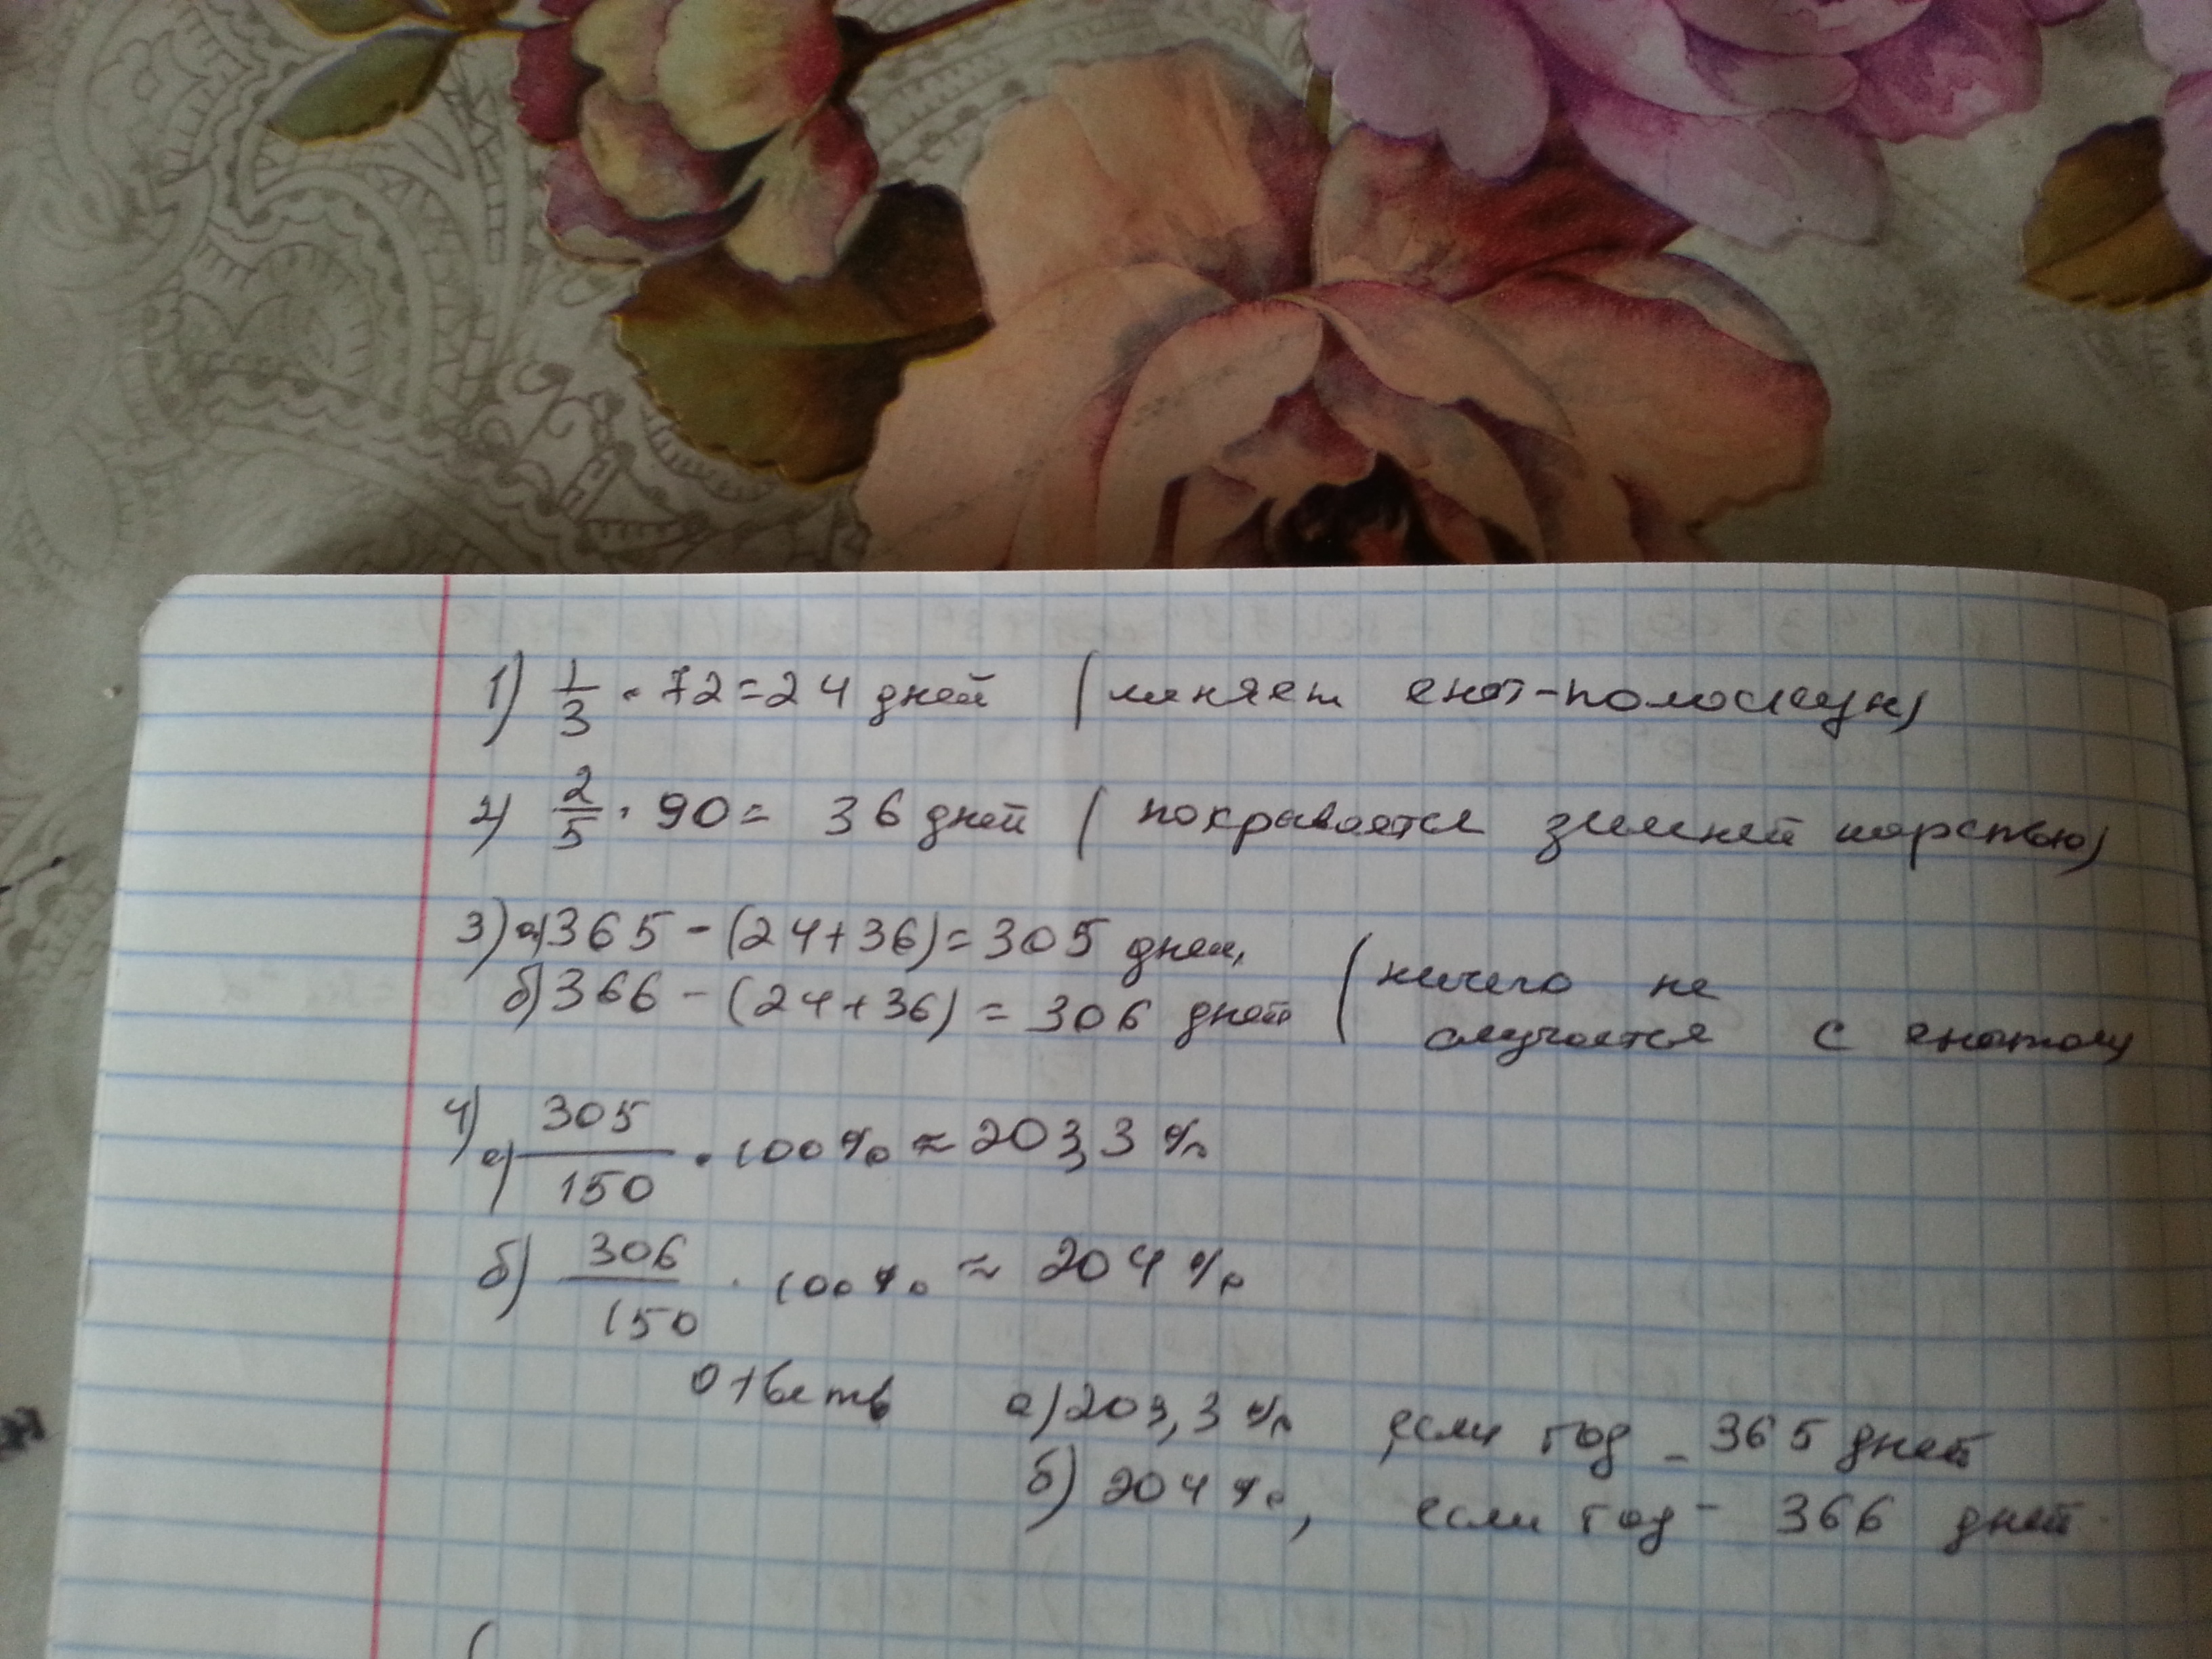 1) 1/3 · 72 = 24 дней (меняет енот-полоскун)
2) 2/5 · 90 = 36 дней (покравается зимней шерстью)
3) а) 365 - (24 + 36) = 305 дней,
б) 366 - (24 + 36) = 306 дней (ничего не случается с енотом)
4) а) 305/150 · 100% ≈ 203,3 %
б) 306/150 · 100% ≈ 204 %
Ответ а) 203,3 % если год - 365 дней
б) 204 %, если год - 366 дней